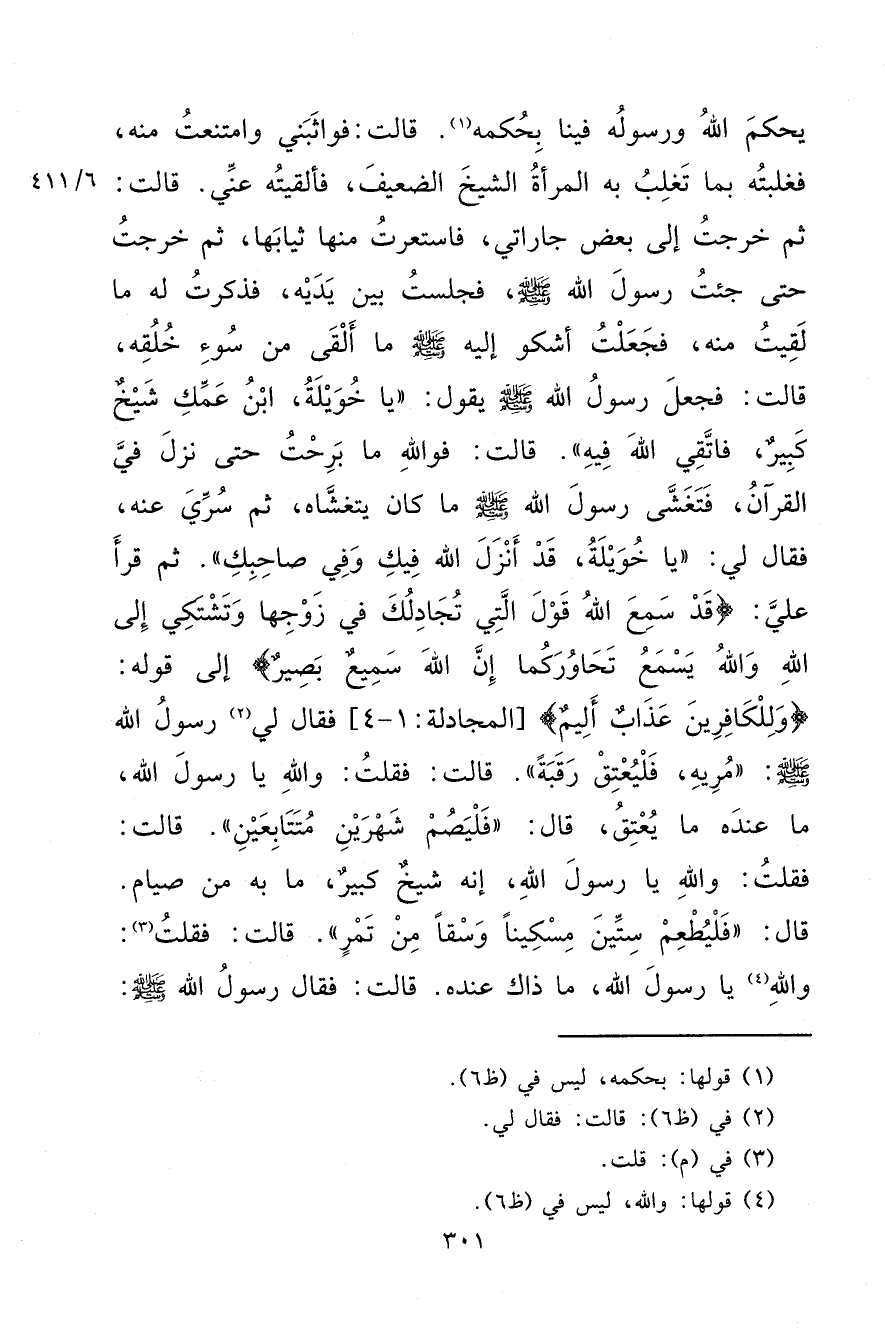 يحكمَ اللهُ ورسولُه فينا بِحُكمه⁽¹⁾. قالت: فواثَبَني وامتنعتُ منه،
فغلبتُه بما تَغلِبُ به المرأةُ الشيخَ الضعيفَ، فألقيتُه عنِّي. قالت: ٤١١/٦
ثم خرجتُ إلى بعض جاراتي، فاستعرتُ منها ثيابَها، ثم خرجتُ
حتى جئتُ رسولَ الله ﷺ، فجلستُ بين يَدَيْه، فذكرتُ له ما
لَقِيتُ منه، فجَعَلْتُ أشكو إليه ﷺ ما أَلْقَى من سُوءِ خُلُقِه،
قالت: فجعلَ رسولُ الله ﷺ يقول: «يا خُوَيْلَةُ، ابْنُ عَمِّكِ شَيْخٌ
كَبِيرٌ، فاتَّقِي اللهَ فِيهِ». قالت: فواللهِ ما بَرِحْتُ حتى نزلَ فيَّ
القرآنُ، فَتَغَشَّى رسولَ الله ﷺ ما كان يتغشَّاه، ثم سُرِّيَ عنه،
فقال لي: «يا خُوَيْلَةُ، قَدْ أَنْزَلَ الله فِيكِ وَفِي صاحِبِكِ». ثم قرأَ
عليَّ: ﴿قَدْ سَمِعَ اللهُ قَوْلَ الَّتِي تُجَادِلُكَ في زَوْجِها وَتَشْتَكِي إِلى
اللهِ وَاللهُ يَسْمَعُ تَحَاوُرَكُما إِنَّ اللهَ سَمِيعٌ بَصِيرٌ﴾ إلى قوله:
﴿وَلِلْكَافِرِينَ عَذَابٌ أَلِيمٌ﴾ [المجادلة: ١-٤] فقال لي⁽²⁾ رسولُ الله
ﷺ: «مُرِيهِ، فَلْيُعْتِقْ رَقَبَةً». قالت: فقلتُ: واللهِ يا رسولَ الله،
ما عندَه ما يُعْتِقُ، قال: «فَلْيَصُمْ شَهْرَيْنِ مُتَتَابِعَيْنِ». قالت:
فقلتُ: واللهِ يا رسولَ اللهِ، إنه شيخٌ كبيرٌ، ما به من صيام.
قال: «فَلْيُطْعِمْ سِتِّينَ مِسْكِيناً وَسْقاً مِنْ تَمْرٍ». قالت: فقلتُ⁽³⁾:
واللهِ⁽⁴⁾ يا رسولَ الله، ما ذاك عنده. قالت: فقال رسولُ الله ﷺ:
(١) قولها: بحكمه، ليس في (ظ٦).
(٢) في (ظ٦): قالت: فقال لي.
(٣) في (م): قلت.
(٤) قولها: والله، ليس في (ظ٦).
٣٠١